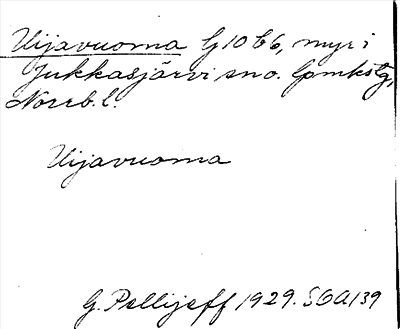 Uijavuoma G10 b6, myr i
Jukkasjärvi sno. Gpmkstg,
Norrb. l.
Uijavuoma
G. Pellijeff 1929. SOA 139